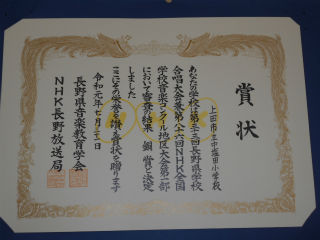 賞状
上田市立中塩田小学校
あなたの学校は第三十三回長野県学校
合唱大会兼第八十六回NHK全国
学校音楽コンクール地区大会第一部
において審査の結果 銅賞と決定
しました
ここにその栄誉を讃え賞状を贈ります
令和元年七月三十一日
長野県音楽教育学会
NHK長野放送局